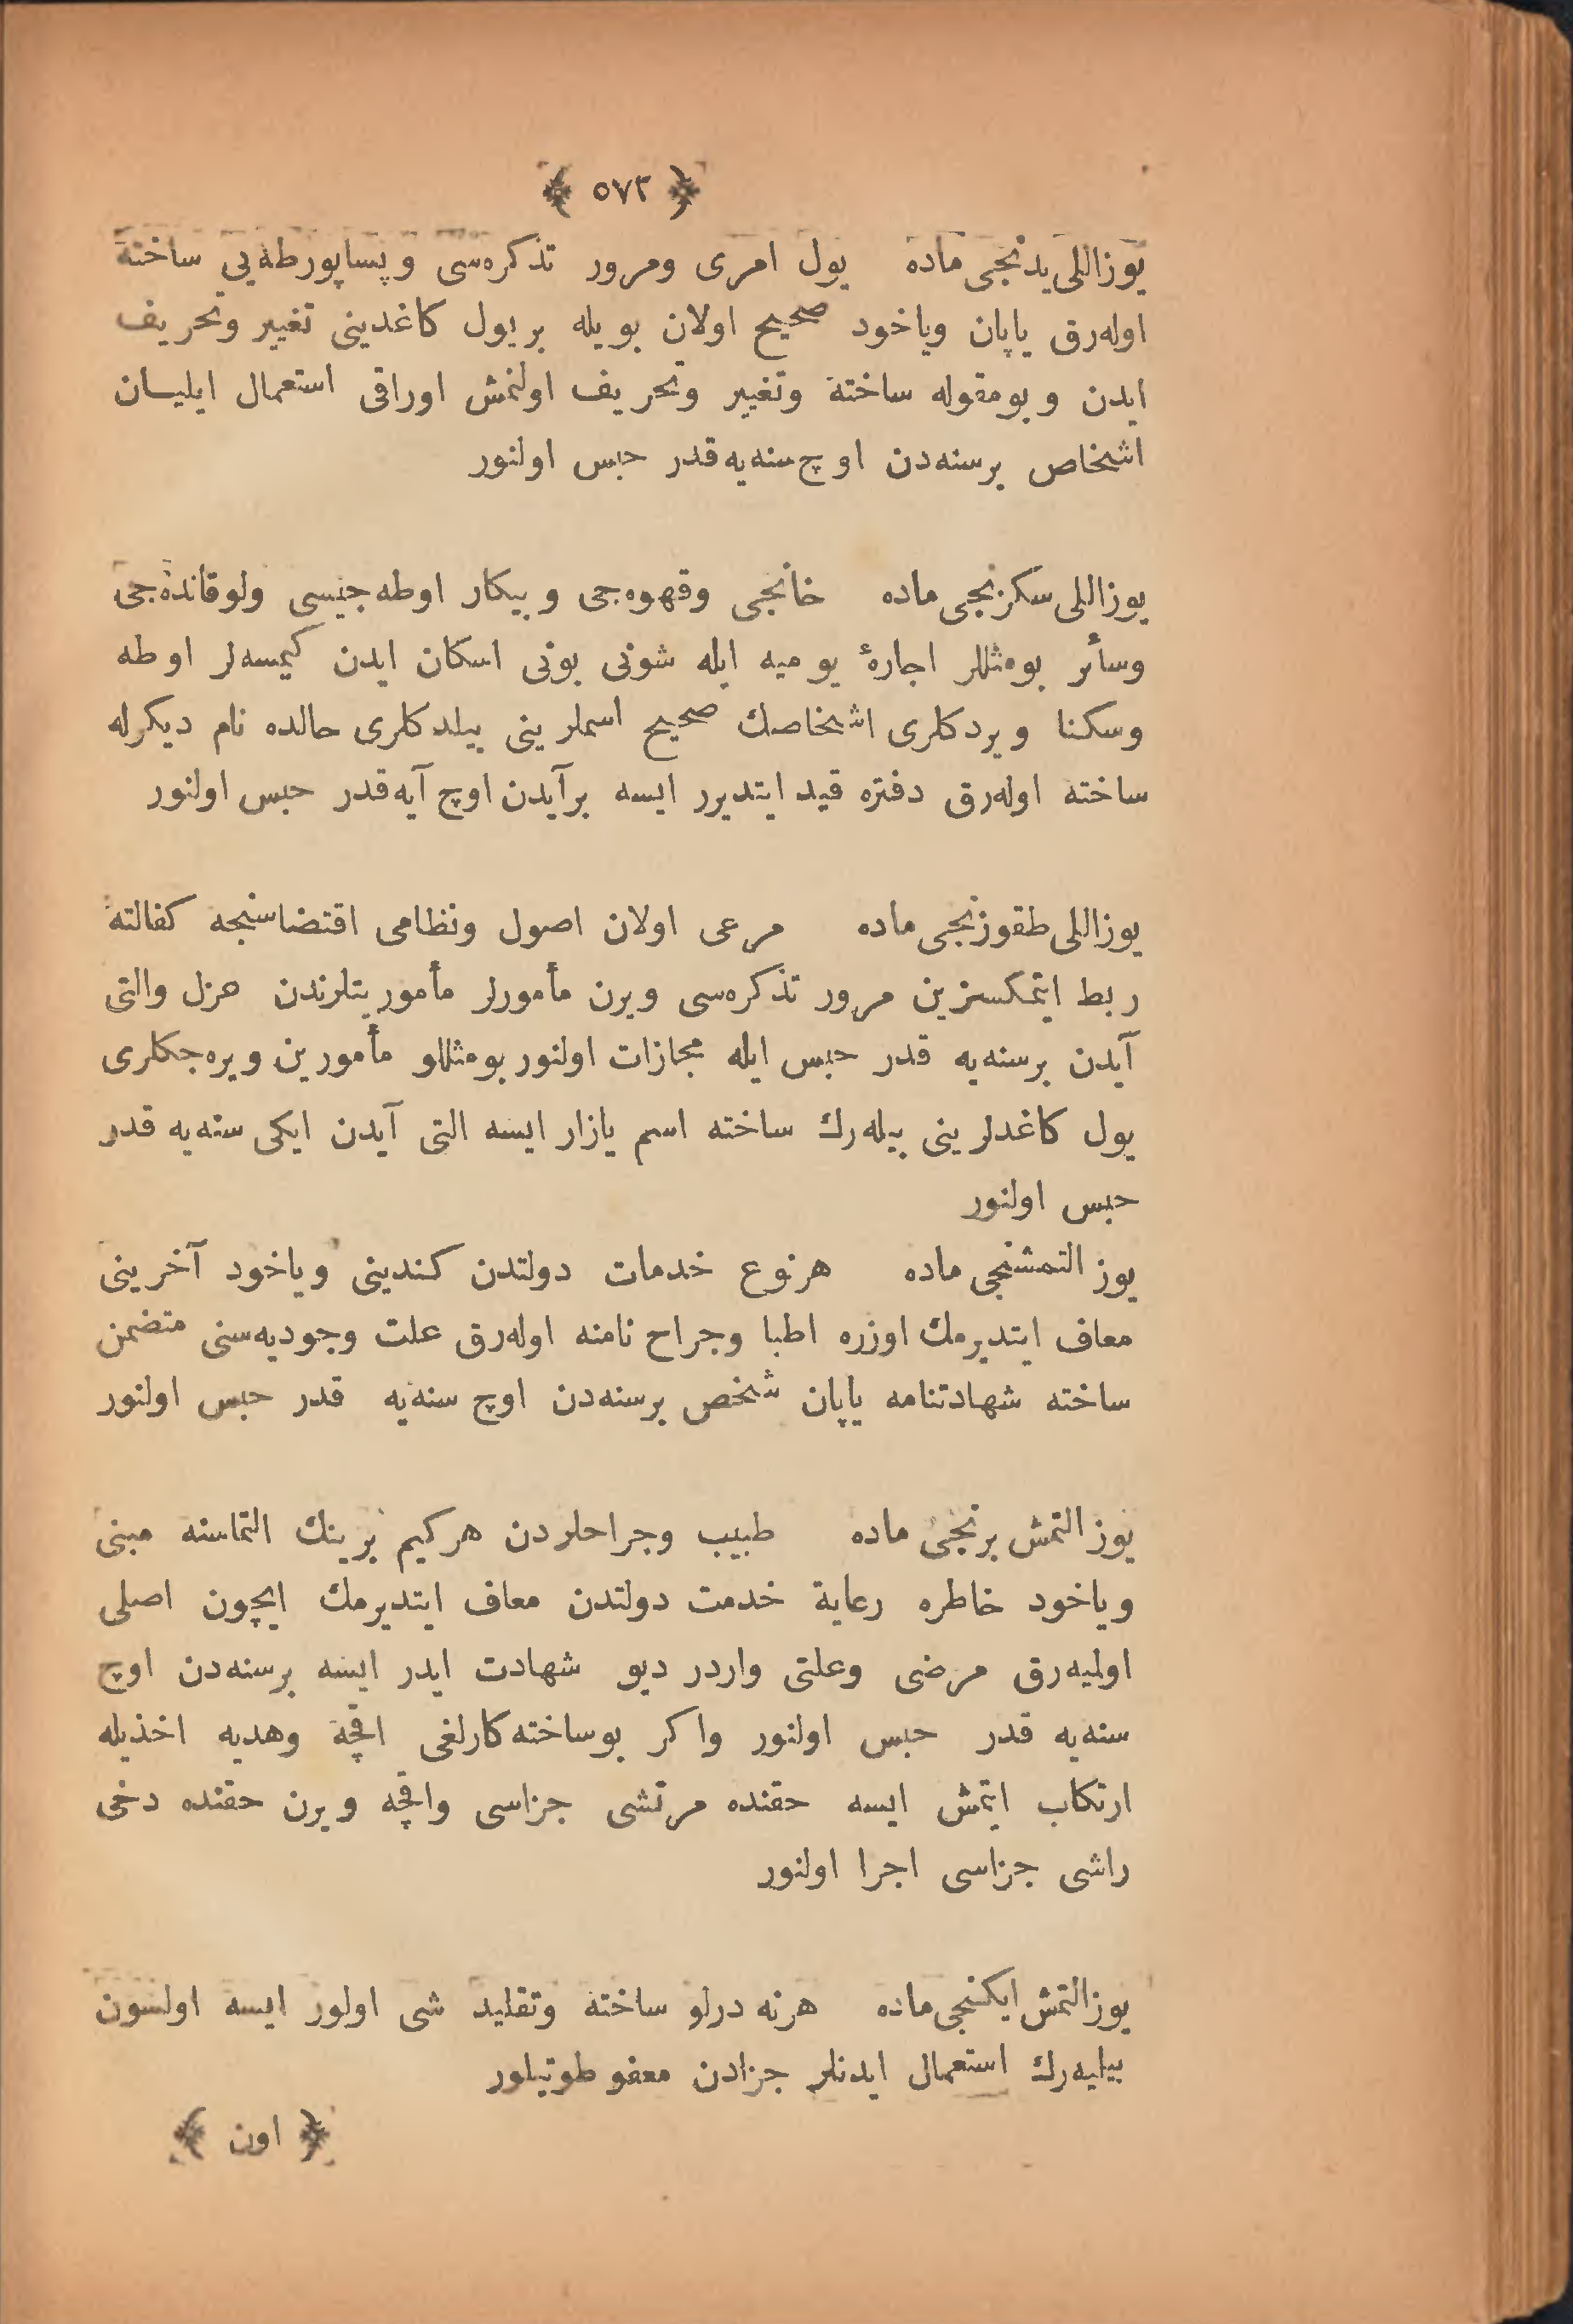 ﴿ ٥٧٢ ﴾
یوزاللی یدنجی ماده یول امری ومرور تذکره‌سی و پساپورطه‌یی ساخته
اوله‌رق یاپان ویاخود صحیح اولان بویله بر یول کاغدینی تغییر وتحریف
ایدن و بومقوله ساخته وتغییر وتحریف اولنمش اوراقی استعمال ایلیان
اشخاص برسنه‌دن اوچ سنه‌یه قدر حبس اولنور
یوزاللی سکزنجی ماده خانجی وقهوه‌جی و بیکار اوطه‌جیسی ولوقانده‌جی
وسأر بومثللر اجارۀ یومیه ایله شونی بونی اسکان ایدن کیمسه‌لر اوطه
وسکنا ویردکلری اشخاصك صحیح اسملرینی بیلدکلری حالده نام دیکرله
ساخته اوله‌رق دفتره قید ایتدیرر ایسه برآیدن اوچ آیه قدر حبس اولنور
یوزاللی طقوزنجی ماده مرعی اولان اصول ونظامی اقتضاسنجه کفالته
ربط ایتمکسزین مرور تذکره‌سی ویرن مأمورلر مأموریتلرندن عزل والتی
آیدن برسنه‌یه قدر حبس ایله مجازات اولنور بومثللو مأمورین ویره‌جکلری
یول کاغدلرینی بیله‌رك ساخته اسم یازار ایسه التی آیدن ایکی سنه‌یه قدر
حبس اولنور
یوز التمشنجی ماده هرنوع خدمات دولتدن کندینی ویاخود آخرینی
معاف ایتدیرمك اوزره اطبا وجراح نامنه اوله‌رق علت وجودیه‌سنی متضمن
ساخته شهادتنامه یاپان شخص برسنه‌دن اوچ سنه‌یه قدر حبس اولنور
یوز التمش برنجی ماده طبیب وجراحلردن هرکیم برینك التماسنه مبنی
ویاخود خاطره رعایة خدمت دولتدن معاف ایتدیرمك ایچون اصلی
اولمیه‌رق مرضی وعلتی واردر دیو شهادت ایدر ایسه برسنه‌دن اوچ
سنه‌یه قدر حبس اولنور واکر بوساخته‌کارلغی اقچه وهدیه اخذیله
ارتکاب ایتمش ایسه حقنده مرتشی جزاسی واقچه ویرن حقنده دخی
راشی جزاسی اجرا اولنور
یوزالتمش ایکنجی ماده هرنه درلو ساخته وتقلید شی اولور ایسه اولسون
بیلمیه‌رك استعمال ایدنلر جزادن معفو طوتیلور
﴿ اون ﴾